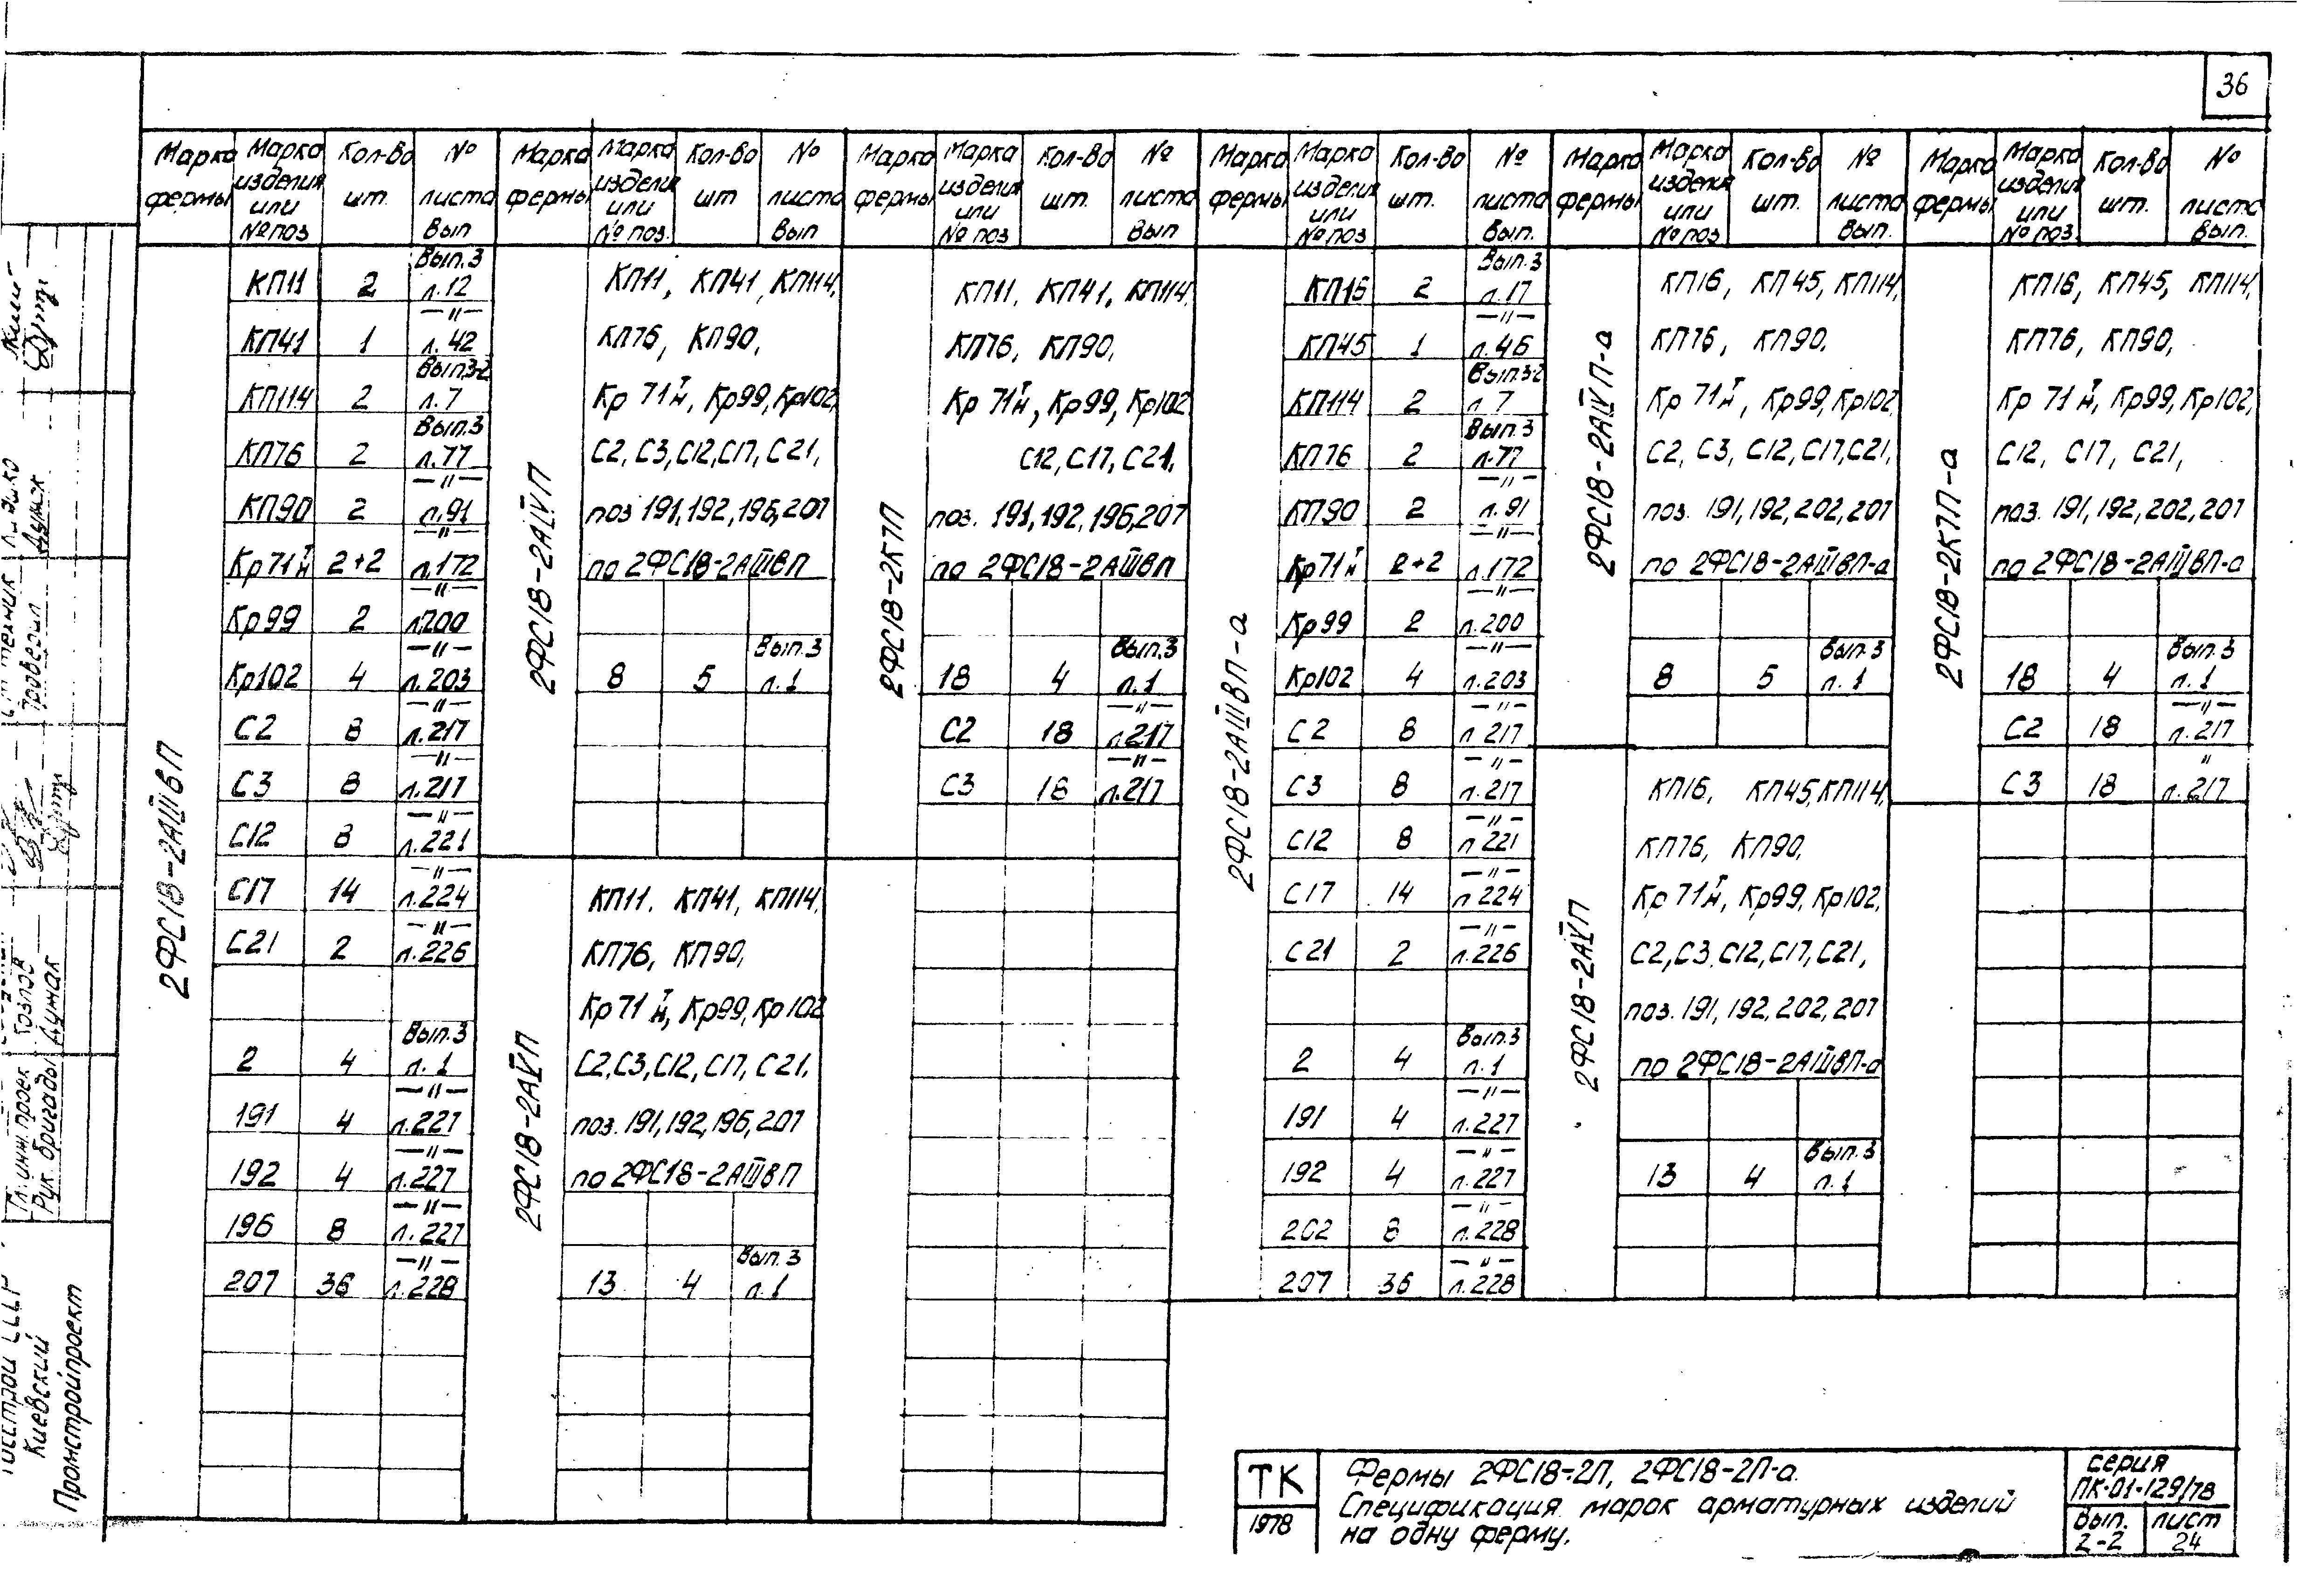 36
Марка фермы | Марка изделия или № поз | Кол-во шт. | № листа Вып
2ФС18-2АIIIвП
КП11 2 Вып.3 л.12
КП41 1 —"— л.42
КП114 2 Вып.3-2 л.7
КП76 2 Вып.3 л.77
КП90 2 —"— л.91
Кр71 I н 2+2 —"— л.172
Кр99 2 —"— л.200
Кр102 4 —"— л.203
С2 8 —"— л.217
С3 8 —"— л.217
С12 8 —"— л.221
С17 14 —"— л.224
С21 2 —"— л.226
2 4 Вып.3 л.1
191 4 —"— л.227
192 4 —"— л.227
196 8 —"— л.227
207 36 —"— л.228
Марка фермы | Марка изделия или № поз. | Кол-во шт | № листа Вып
2ФС18-2АIVП
КП11, КП41, КП114,
КП76, КП90,
Кр 71 I н, Кр99, Кр102,
С2, С3, С12, С17, С21,
поз 191, 192, 196, 207
по 2ФС18-2АIIIвП
8 5 Вып.3 л.1
2ФС18-2АVП
КП11. КП41, КП114,
КП76, КП90,
Кр 71 I н, Кр99, Кр102
С2, С3, С12, С17, С21.
поз. 191, 192, 196, 207
по 2ФС18-2АIIIвП
13 4 Вып.3 л.1
Марка фермы | Марка изделия или № поз | Кол-во шт. | № листа Вып
2ФС18-2К7П
КП11, КП41, КП114,
КП76, КП90,
Кр 71 I н, Кр99, Кр102
С12, С17, С21,
поз. 191, 192, 196, 207
по 2ФС18-2АIIIвП
18 4 Вып.3 л.1
С2 18 —"— л.217
С3 18 —"— л.217
Марка фермы | Марка изделия или № поз | Кол-во шт. | № листа Вып.
2ФС18-2АIIIвП-а
КП16 2 Вып.3 л.17
КП45 1 —"— л.46
КП114 2 Вып.3-2 л 7
КП76 2 Вып.3 л.77
КП90 2 —"— л.91
Кр71 I н 2+2 —"— л.172
Кр99 2 —"— л.200
Кр102 4 —"— л.203
С2 8 —"— л 217
С3 8 —"— л.217
С12 8 —"— л 221
С17 14 —"— л 224
С21 2 —"— л.226
2 4 Вып.3 л.1
191 4 —"— л.227
192 4 —"— л.227
202 8 —"— л.228
207 36 —"— л.228
Марка фермы | Марка изделия или № поз | Кол-во шт. | № листа Вып.
2ФС18-2АIVП-а
КП16, КП45, КП114,
КП76, КП90,
Кр 71 I н, Кр99, Кр102
С2, С3, С12, С17, С21,
поз. 191, 192, 202, 207
по 2ФС18-2АIIIвП-а
8 5 Вып.3 л.1
2ФС18-2АVП
КП16, КП45, КП114,
КП76, КП90,
Кр 71 I н, Кр99, Кр102,
С2, С3, С12, С17, С21,
поз. 191, 192, 202, 207
по 2ФС18-2АIIIвП-а
13 4 Вып.3 л.1
Марка фермы | Марка изделия или № поз. | Кол-во шт. | № листа Вып.
2ФС18-2К7П-а
КП16, КП45, КП114,
КП76, КП90,
Кр 71 I н, Кр99, Кр102,
С12, С17, С21,
поз. 191, 192, 202, 207
по 2ФС18-2АIIIвП-а
18 4 Вып.3 л.1
С2 18 —"— л.217
С3 18 " л.217
ТК
1978
Фермы 2ФС18-2П, 2ФС18-2П-а.
Спецификация марок арматурных изделий
на одну ферму.
серия
ПК-01-129/78
Вып. 2-2
лист 24
Гл. инж. проек
Рук. бригады
Козлов
Думак
техник
Проверил
Думак
Госстрой СССР
Киевский
Промстройпроект